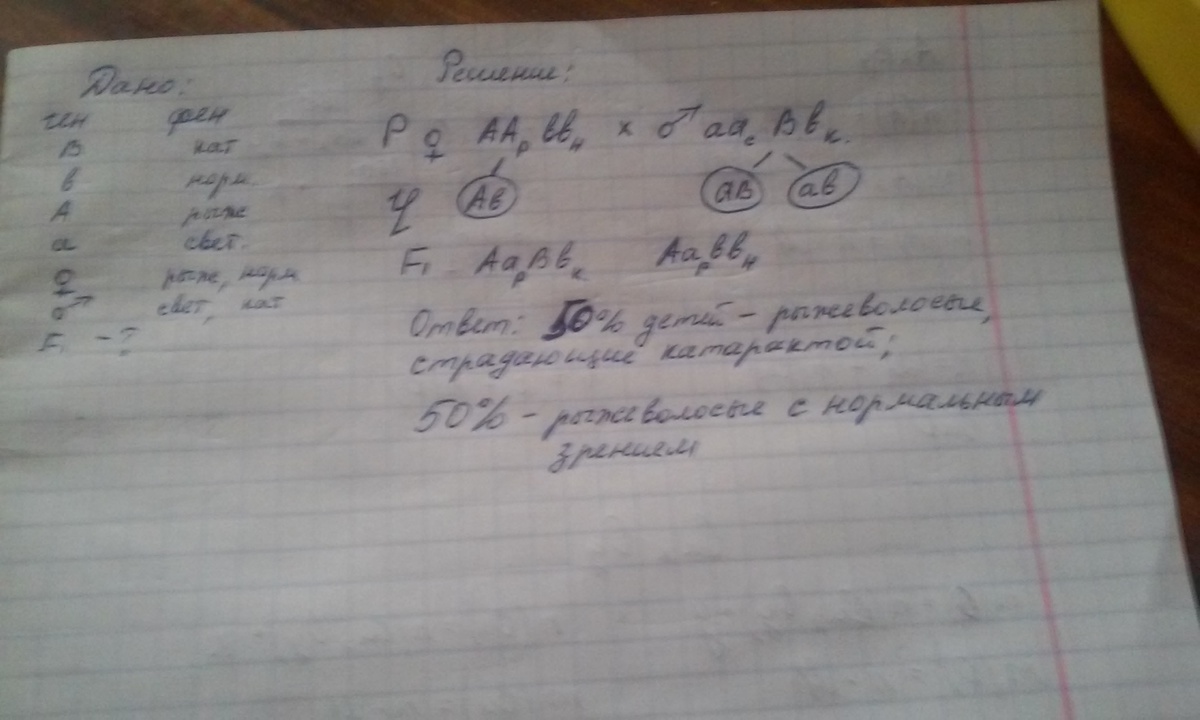 Дано:
ген фен
В кат
в норм.
А рыже
а свет.
♀ рыже, норм
♂ свет, кат
F₁ - ?
Решение:
P ♀ ААр ввн х ♂ аас Ввк.
Ав ав ав
F₁ АарВвк Аарввн
Ответ: 50% детей - рыжеволосые,
страдающие катарактой;
50% - рыжеволосые с нормальным
зрением